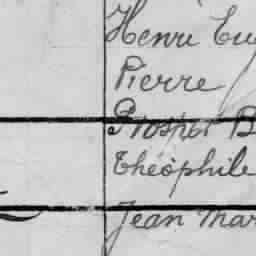 Henri Eu
Pierre
Prosper B
théophile
Jean Mar